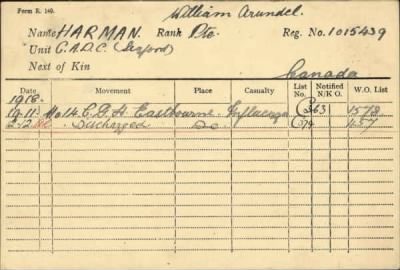 Form R. 149.
William Arundel.
Name HARMAN. Rank Pte. Reg. No. 1015439
Unit C.A.D.C. (Seaford)
Next of Kin Canada
Date Movement Place Casualty List No. Notified N/K O. W.O. List
1918.
19-11- No 14 C.G.H. Eastbourne. Influenza C363 1573
2-12 Discharged Do C374 1657